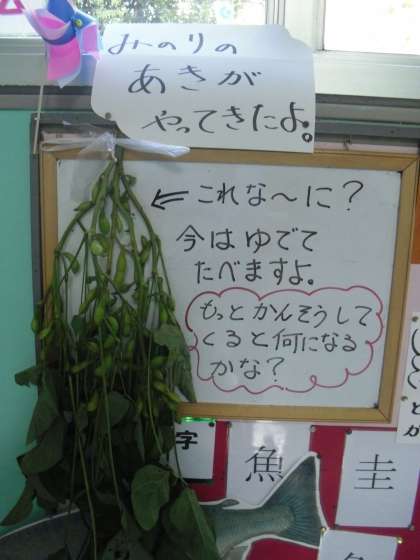 みのりの
あきが
やってきたよ。
これな〜に？
今はゆでて
たべますよ。
もっとかんそうして
くると何になる
かな？
字
魚
圭